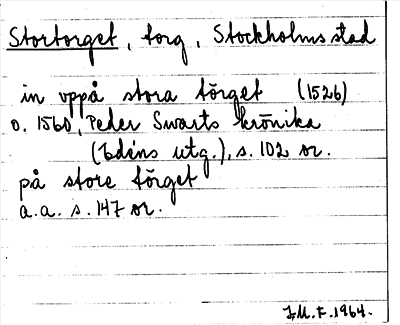 Stortorget, torg, Stockholms stad
in vppå stora törget (1526)
o. 1560, Peder Swarts krönika
(Edéns utg.), s. 102 or.
på store törget
a.a. s. 147 or.
I.M.F. 1964.